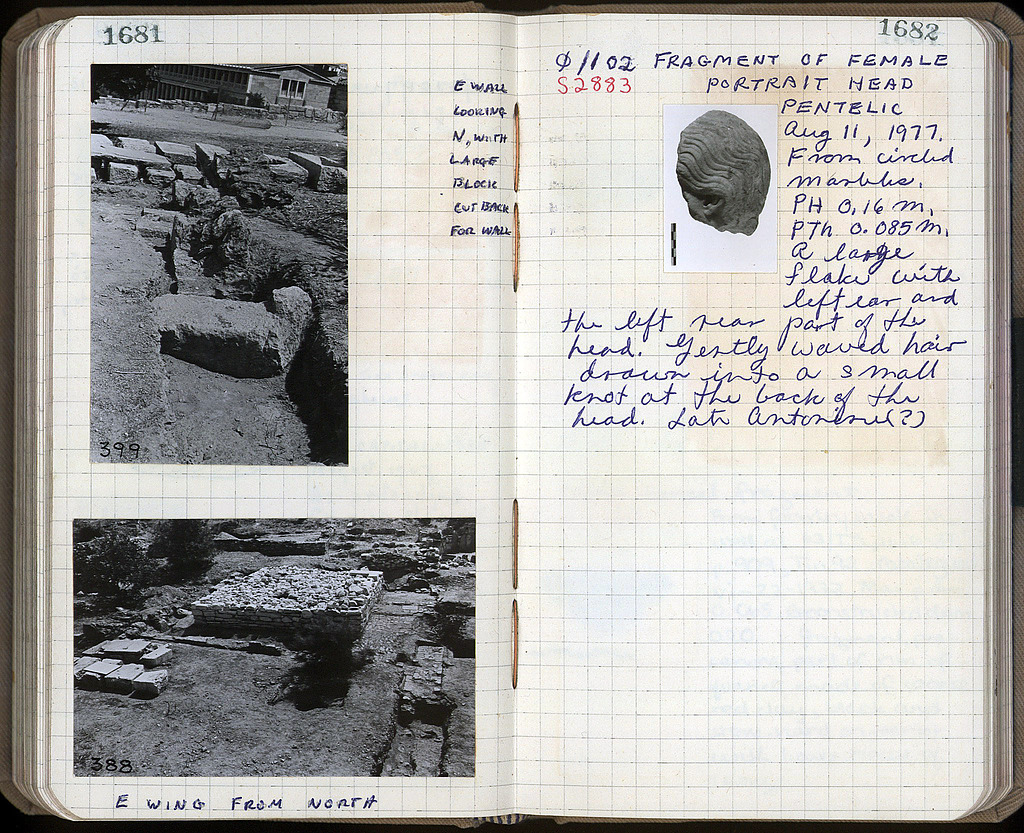 1681
E WALL
LOOKING
N, WITH
LARGE
BLOCK
CUT BACK
FOR WALL
399
388
E WING FROM NORTH
1682
Φ 1102 FRAGMENT OF FEMALE
S2883 PORTRAIT HEAD
PENTELIC
Aug 11, 1977.
From circled
marbles.
PH 0.16 m.
PTh 0.085 m.
A large
flake with
left ear and
the left rear part of the
head. Gently waved hair
drawn into a small
knot at the back of the
head. Late Antonine(?)